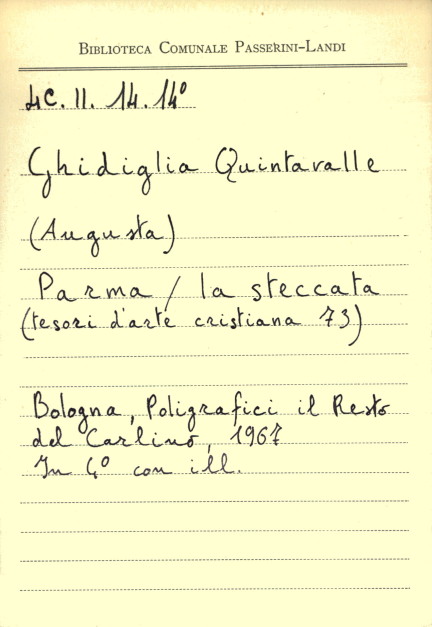 BIBLIOTECA COMUNALE PASSERINI-LANDI
4C. II. 14. 14º
Ghidiglia Quintavalle
(Augusta)
Parma / la steccata
(tesori d'arte cristiana 73)
Bologna, Poligrafici il Resto
del Carlino, 1967
In 4º con ill.